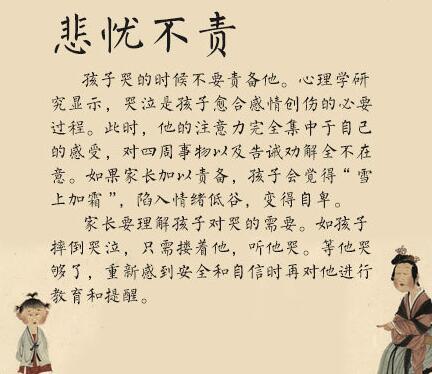 悲忧不责
孩子哭的时候不要责备他。心理学研
究显示，哭泣是孩子愈合感情创伤的必要
过程。此时，他的注意力完全集中于自己
的感受，对四周事物以及告诫劝解全不在
意。如果家长加以责备，孩子会觉得“雪
上加霜”，陷入情绪低谷，变得自卑。
家长要理解孩子对哭的需要。如孩子
摔倒哭泣，只需搂着他，听他哭。等他哭
够了，重新感到安全和自信时再对他进行
教育和提醒。